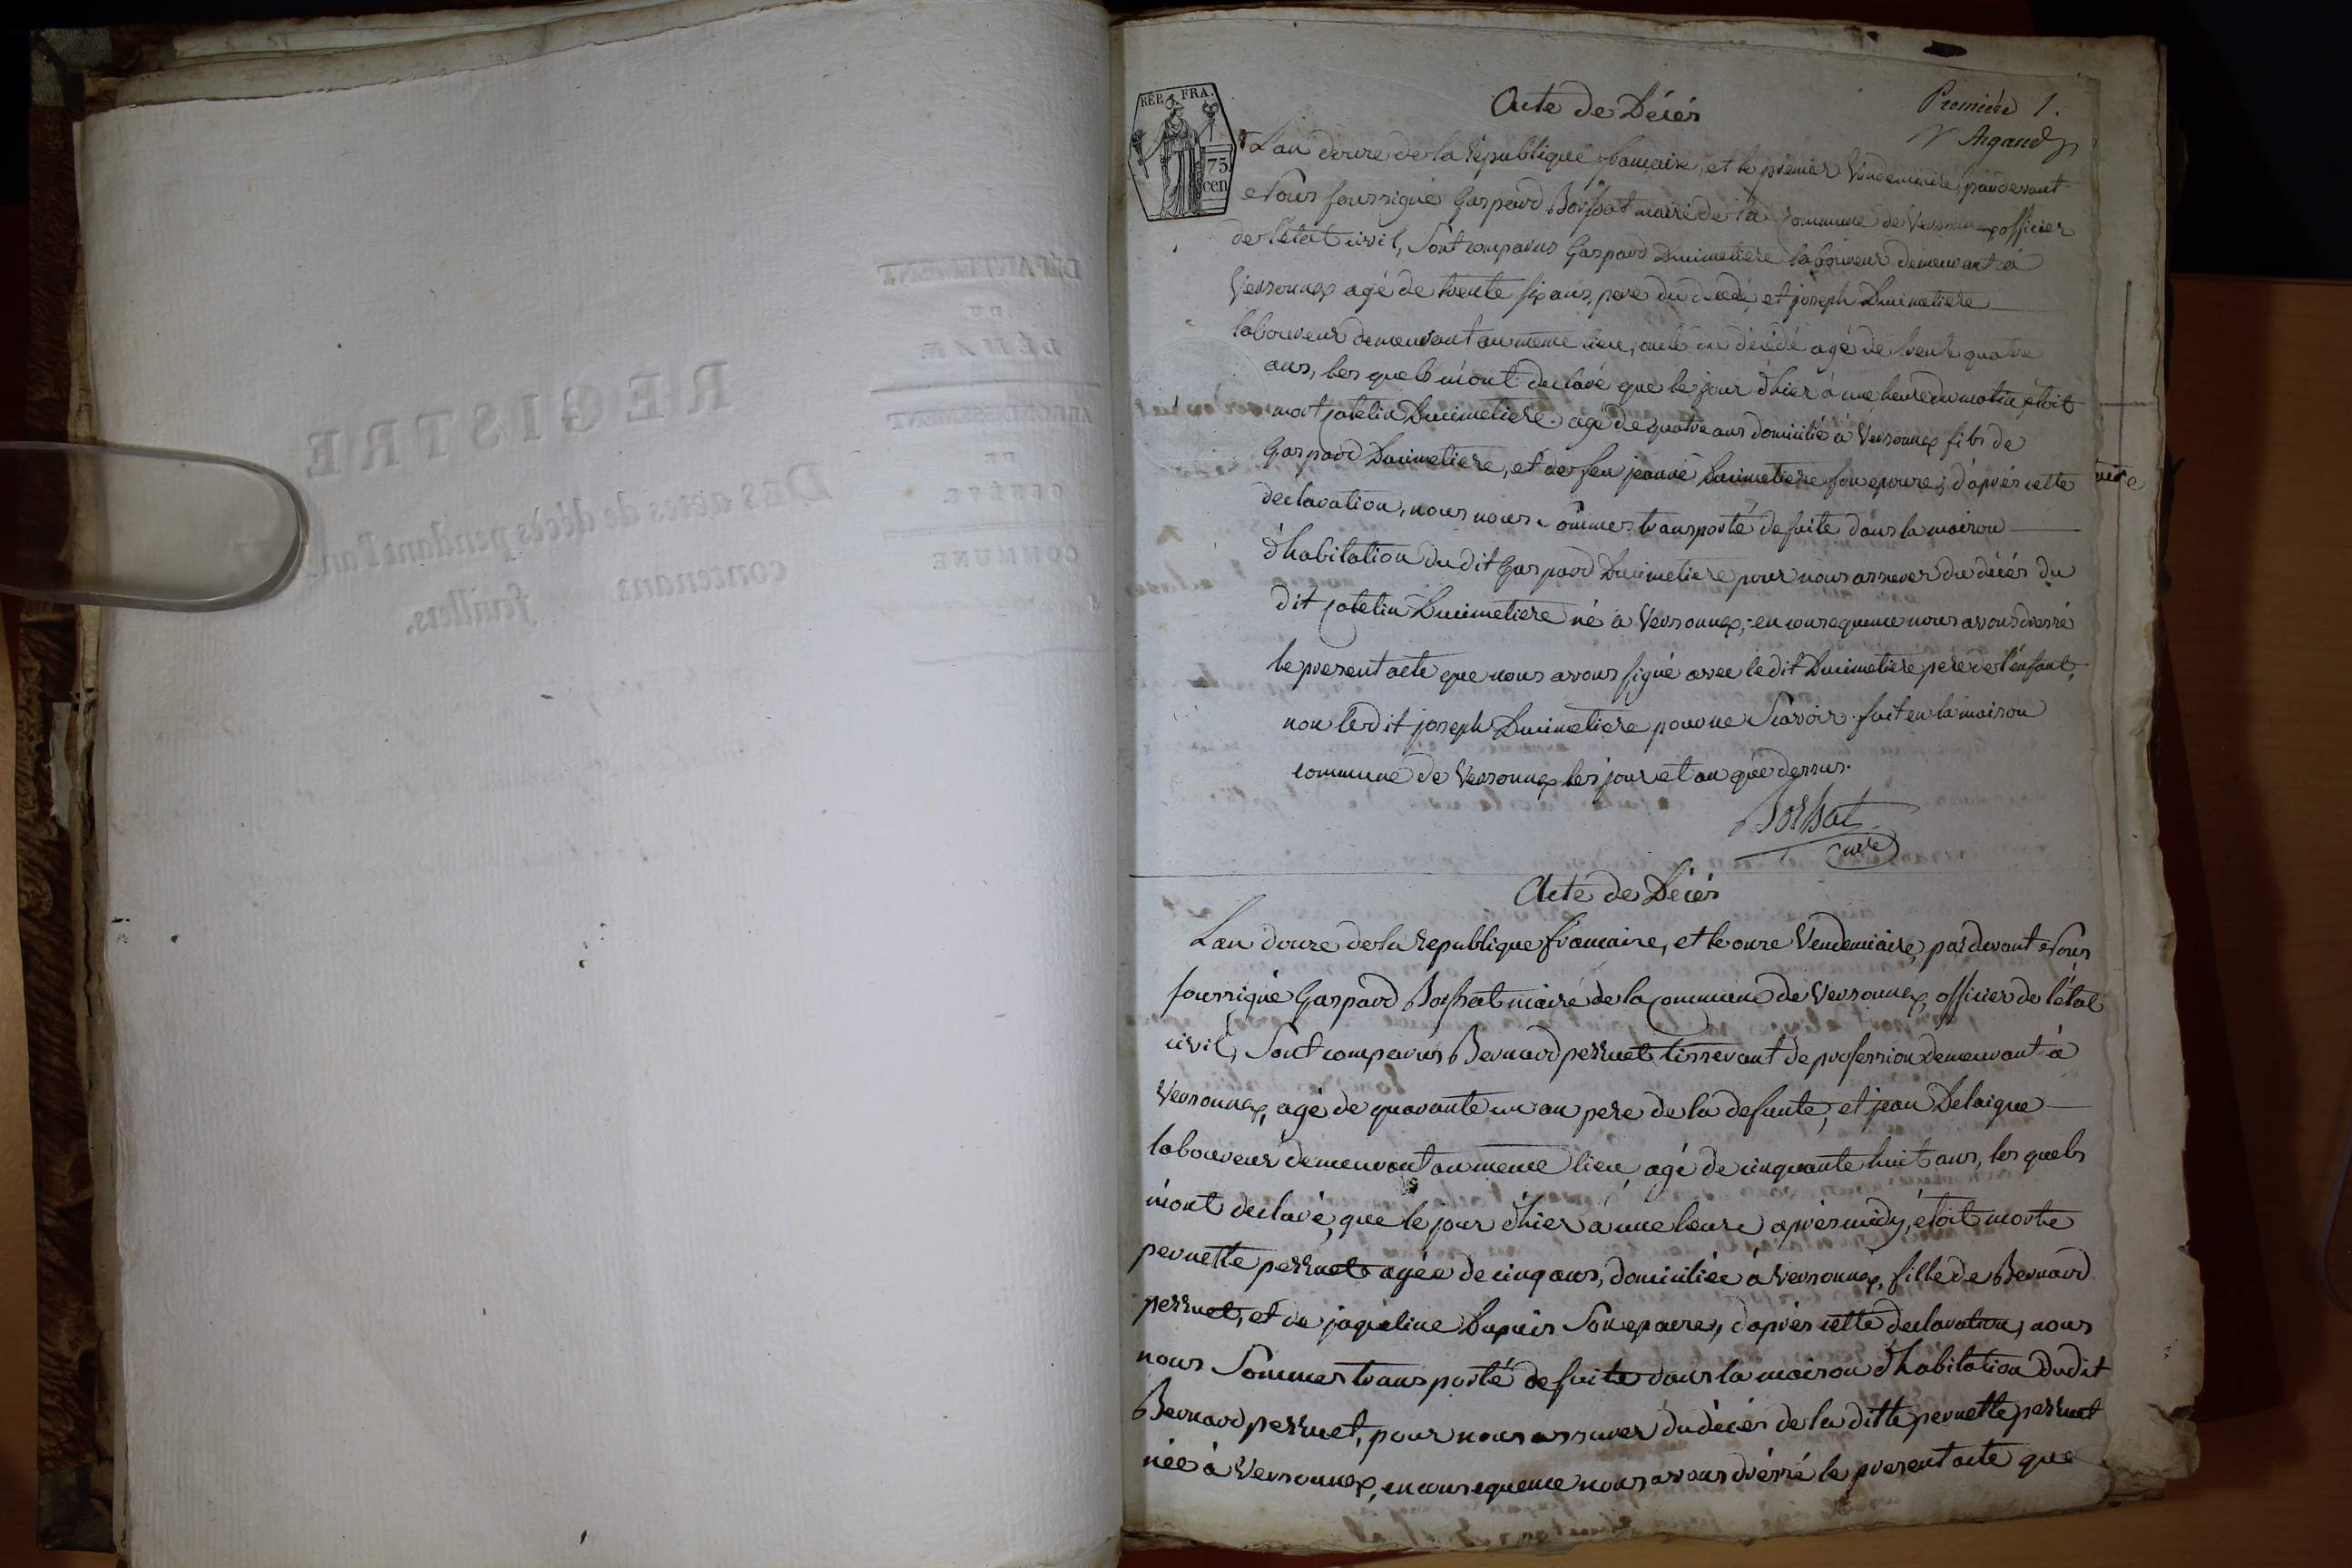 REGISTRE
DES actes de décès pendant l'an
contenans feuillets.
DÉPARTEMENT
DU
LÉMAN.
ARRONDISSEMENT
DE
GENÈVE.
COMMUNE
d
RÉP. FRA.
75
cen
Premier 1.
Argand
Acte de Décés
L'an douze de la republique francaise, et le premier Vendemiaire, pardevant
Nous soussigné Gaspard Boissat maire de la Commune de Versonnex officier
de l'état civil, Sont comparus Gaspard Ducimetiere laboureur demeurant à
Versonnex agé de trente six ans, pere du decedé, et joseph Ducimetiere
laboureur demeurant au meme lieu, oncle du décédé agé de trente quatre
ans, les quels m'ont declaré que le jour d'hier à une heure du matin étoit
mort jatelin Ducimetiere agé de quatre ans domicilié à Versonnex fils de
Gaspard Ducimetiere, et de feu jeanne Ducimetiere son epouse, d'après cette
declaration, nous nous sommes transporté de suite dans la maison
d'habitation du dit Gaspard Ducimetiere pour nous assurer du décés du
dit jatelin Ducimetiere né à Versonnex, en consequence nous avons dressé
le present acte que nous avons signé avec le dit Ducimetiere pere de l'enfant,
non le dit joseph Ducimetiere pour ne Scavoir. fait en la maison
commune de Versonnex les jour et an que dessus.
Boissat
Acte de Décés
L'an douze de la republique francaise, et le onze Vendemiaire, pardevant Nous
soussigné Gaspard Boissat maire de la Commune de Versonnex, officier de l'état
civil, Sont comparus Bernard perruet tisserant de profession demeurant à
Versonnex, agé de quarante un an pere de la defunte, et jean Delaigue
laboureur demeurant au meme lieu, agé de cinquante huit ans, les quels
m'ont declaré, que le jour d'hier à une heure après midy, étoit morte
pernette perruet agée de cinq ans, domiciliée à Versonnex, fille de Bernard
perruet, et de jaqueline Dupuis Son epouse, d'après cette declaration, nous
nous Sommes transporté de suite dans la maison d'habitation dudit
Bernard perruet, pour nous assurer du décés de la ditte pernette perruet
née à Versonnex, en consequence nous avons dressé le present acte que